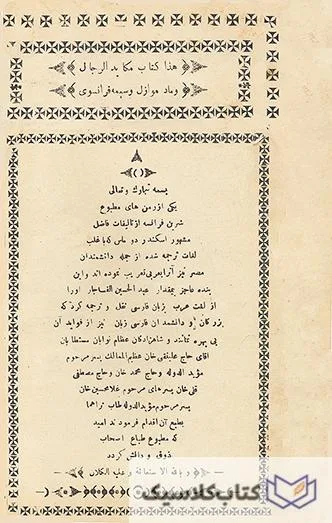 هذا کتاب مکاید الرجال
وماد موازل وسیمه فرانسوی
بسمه تبارك وتعالی
یکی از رمن های مطبوع
شرین فرانسه از تالیفات فاضل
مشهور اسکندر دو ماس که با غلب
لغات ترجمه شده از جمله دانشمندان
مصر نیز آنرا بعربی تعریب نموده اند واین
بنده عاجز بیمقدار عبد الحسین القاجار اورا
از لغت عرب بزبان فارسی نقل و ترجمه کرد که
بزرگان و دانشمندان فارسی زبان نیز از فواید آن
بی بهره نمانند و شاهزادگان عظام نوابان مستطابان
اقای حاج علینقی خان عظیم الممالك پسر مرحوم
مؤید الدوله وحاج محمد خان وحاج مصطفی
قلی خان پسرهای مرحوم غلامحسین خان
پسر مرحوم مؤیدالدوله طاب ثراهما
بطبع آن اقدام فرمودند امید
که مطبوع طباع اصحاب
ذوق و دانش گردد
و بالله الاستعانة و علیه التکلان
کتاب کلاسیک